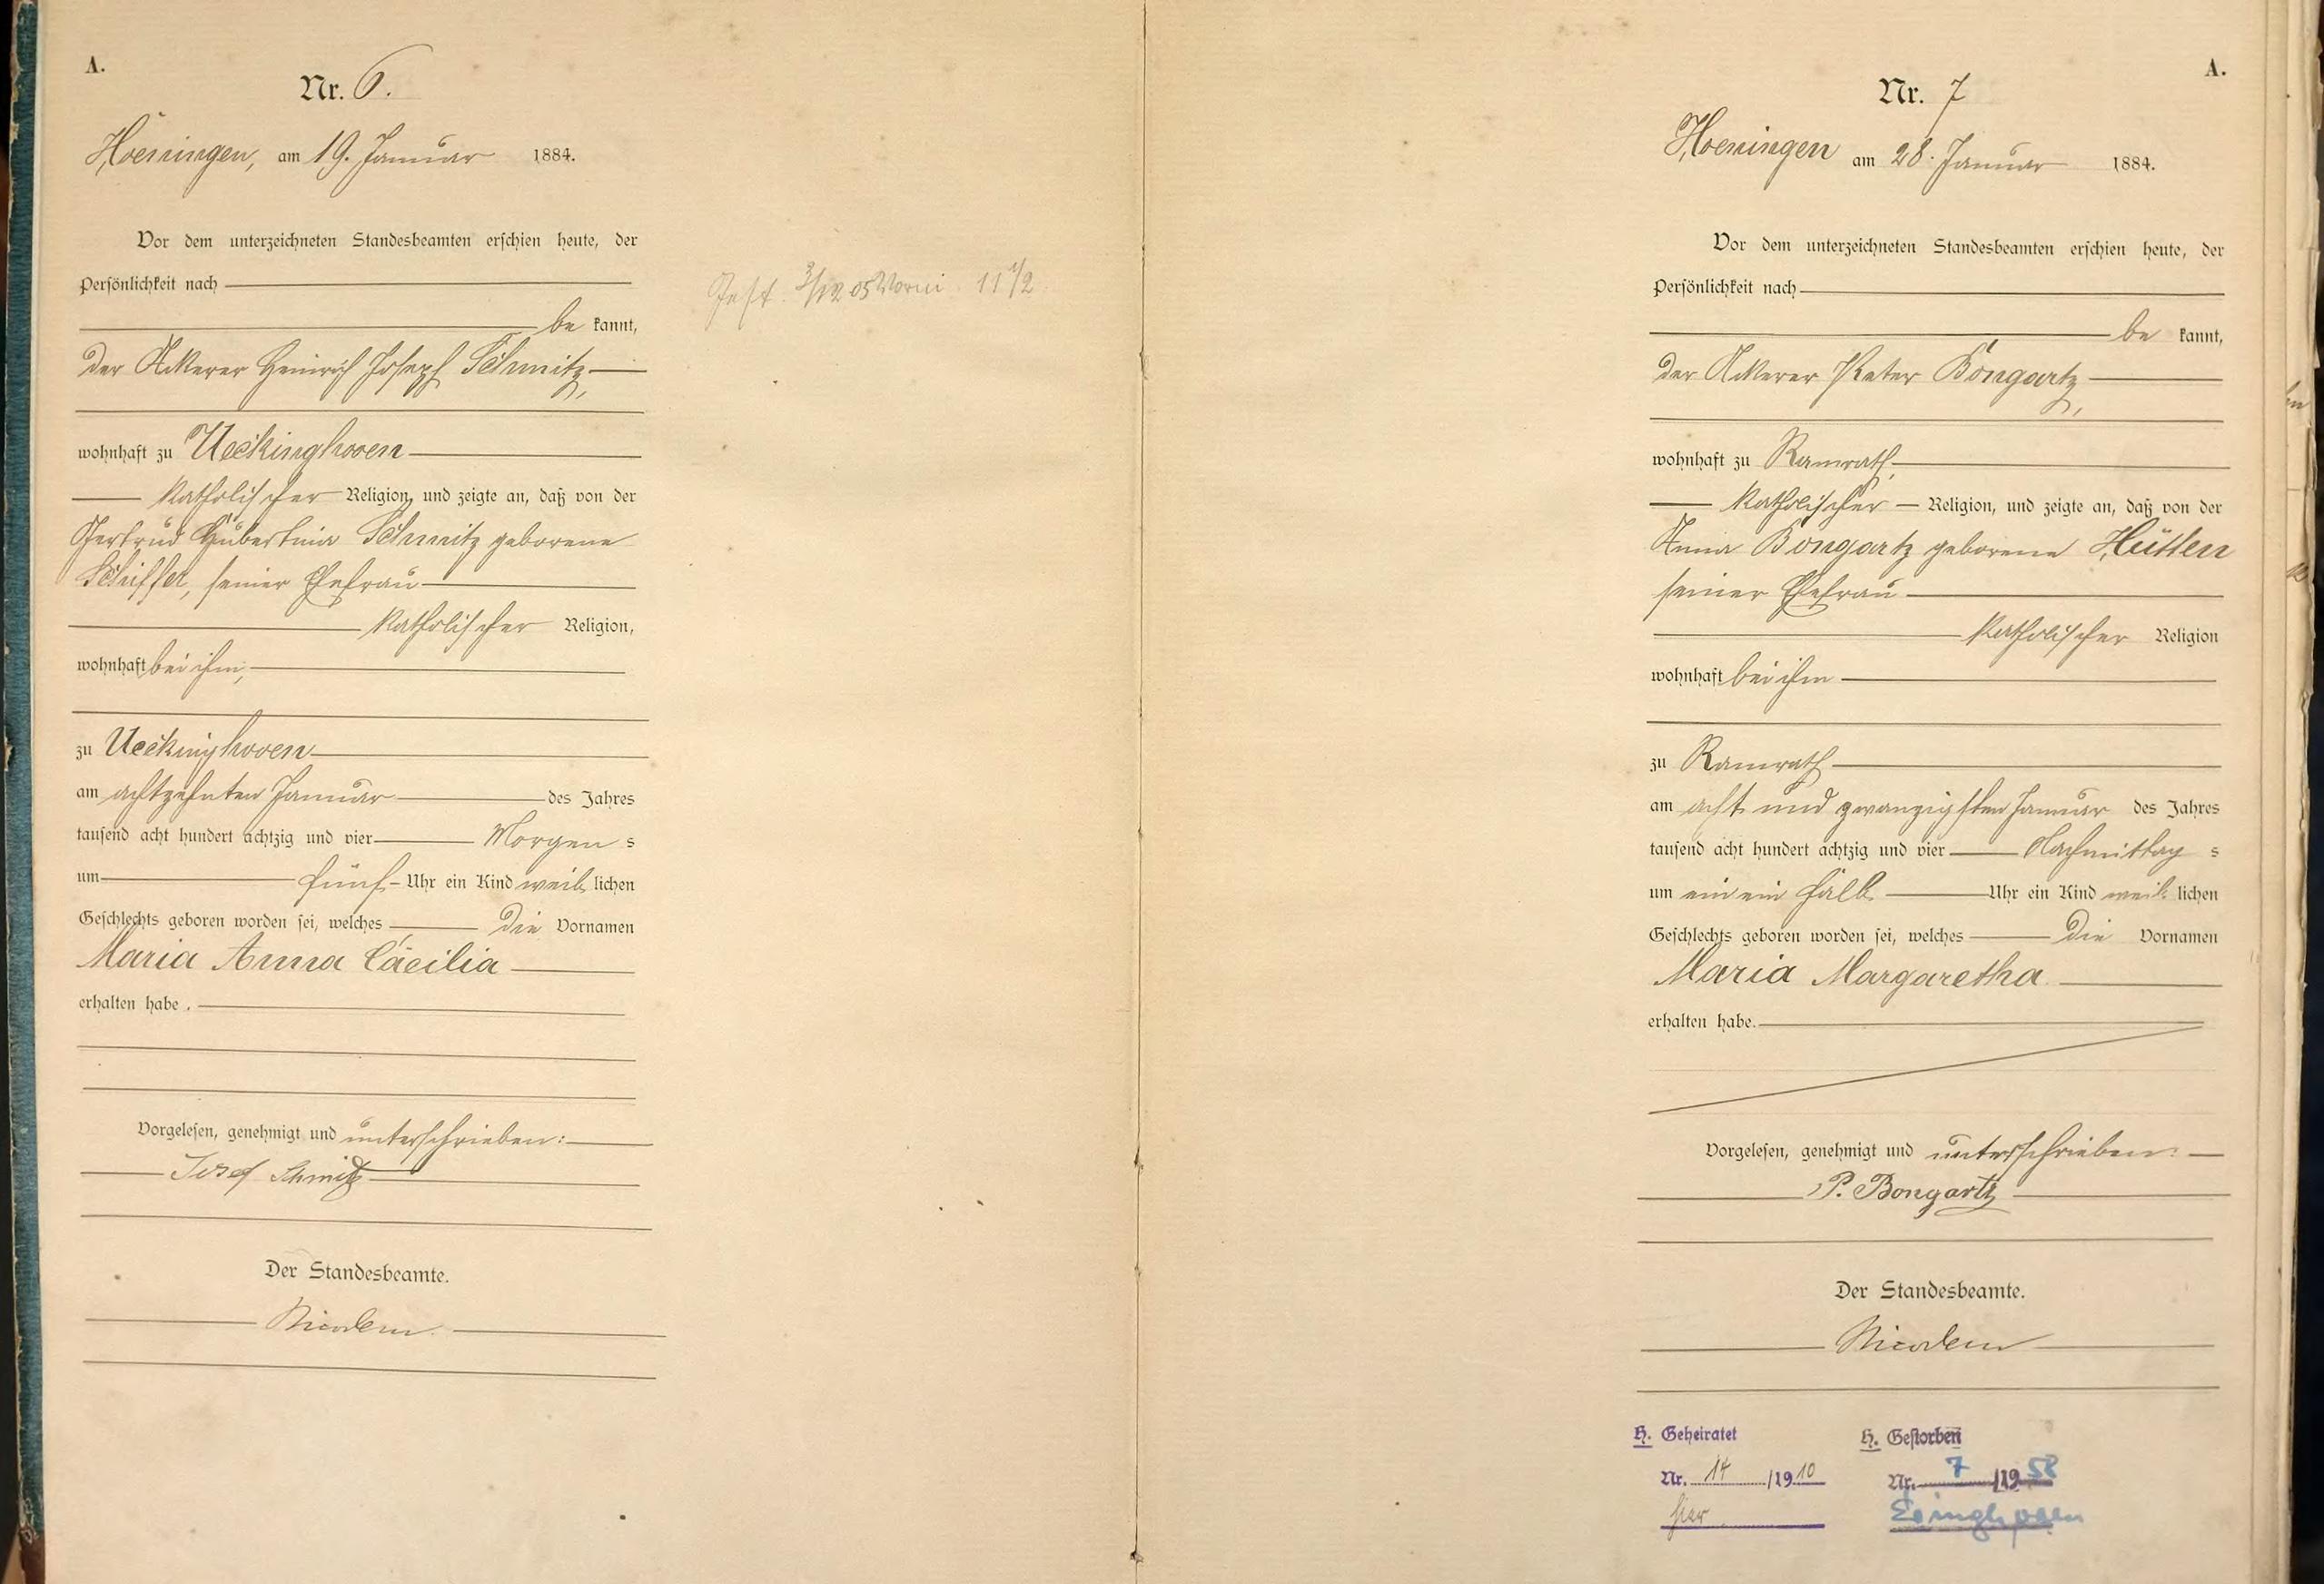 A.
Nr. 6.
Hoeningen, am 19. Januar 1884.
Vor dem unterzeichneten Standesbeamten erschien heute, der
Persönlichkeit nach
be kannt,
der Ackerer Heinrich Joseph Schmitz,
wohnhaft zu Ueckinghoven
katholischer Religion, und zeigte an, daß von der
Gertrud Hubertina Schmitz geborene
Schiffer, seiner Ehefrau
katholischer Religion,
wohnhaft bei ihm,
zu Ueckinghoven
am achtzehnten Januar des Jahres
tausend acht hundert achtzig und vier Morgens
um fünf Uhr ein Kind weiblichen
Geschlechts geboren worden sei, welches die Vornamen
Maria Anna Cäcilia
erhalten habe.
Vorgelesen, genehmigt und unterschrieben:
Josef Schmitz
Der Standesbeamte.
05 11 1/2
A.
Nr. 7
Hoeningen am 28. Januar 1884.
Vor dem unterzeichneten Standesbeamten erschien heute, der
Persönlichkeit nach
be kannt,
der Ackerer Peter Bongartz,
wohnhaft zu Ramrath,
katholischer Religion, und zeigte an, daß von der
Anna Bongartz geborene Hütten
seiner Ehefrau
katholischer Religion
wohnhaft bei ihm
zu Ramrath
am acht und zwanzigsten Januar des Jahres
tausend acht hundert achtzig und vier Nachmittags
um ein ein halb Uhr ein Kind weiblichen
Geschlechts geboren worden sei, welches die Vornamen
Maria Margaretha
erhalten habe.
Vorgelesen, genehmigt und unterschrieben:
P. Bongartz
Der Standesbeamte.
H. Geheiratet
Nr. 14 /1910
hier
H. Gestorben
Nr. 7 /1958